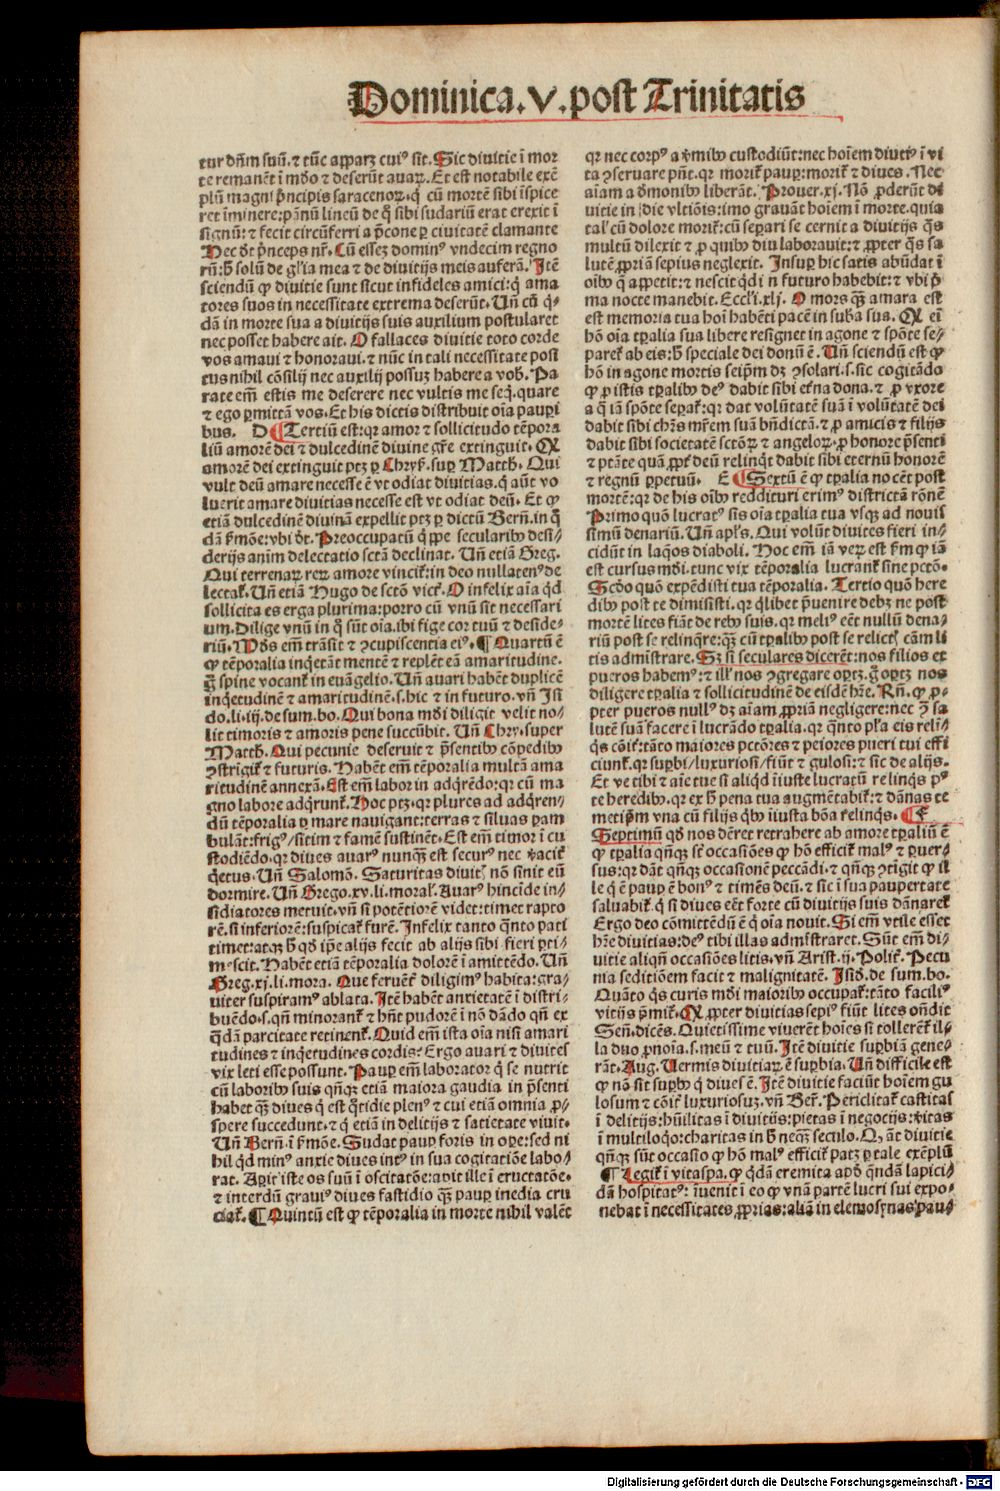 Dominica.V.post Trinitatis
tur dn̄m suū.⁊ tūc apparꝫ cuiꝰ sit.Sic diuitie ī mor
te remanēt ī mūdo ⁊ deserūt auaꝝ. Et est notabile exē
plū magni pͥncipis saracenoꝝ.qͥ cū mortē sibi īspice
ret īminere:pānū lineū de qͦ sibi sudariū erat erexit ī
signū:⁊ fecit circūferri a p̄cone ꝑ ciuitatē clamante
Hec dic̄t pͥnceps nr̄. Cū essez dominꝰ vndecim regno
rū:hͦ solū de gl̓ia mea ⁊ de diuitijs meis auferā. Itē
sciendū ꝙ diuitie sunt sicut infideles amici:qͥ ama
tores suos in necessitate extrema deserūt. Un̄ cū qͥ-
dā in morte sua a diuitijs suis auxilium postularet
nec posset habere ait. O fallaces diuitie toto corde
vos amaui ⁊ honoraui.⁊ nūc in tali necessitate posi
tus nihil cōsilij nec auxilij possuꝫ habere a vob̓. Pa
rate em̄ estis me deserere nec vultis me seq̇.quare
⁊ ego ꝑmittā vos. Et his dictis distribuit oīa pauꝑi
bus. D ¶Tertiū est:qꝛ amor ⁊ sollicitudo tēpora
liū amorē dei ⁊ dulcedinē diuine gr̄e extinguit. Qꝫ
amorē dei extinguit ptꝫ ꝑ Chryſ̓. suꝑ Matth̓. Qui
vult deū amare necesse ē vt odiat diuitias.qͥ aūt vo
luerit amare diuitias necesse est vt odiat deū. Et ꝙ
etiā dulcedinē diuinā expellit ptꝫ ꝑ dictū Bern̄.in qͦ
dā sr̄mōe:vbi dc̄t. Preoccupatū qͥppe secularibꝰ desi-
derijs animū delectatio sctā declinat. Un̄ etiā Greg.
Qui terrenaꝝ reꝝ amore vincit̉:in deo nullatenꝰ de
lectat̉. Un̄ etiā Hugo de sctō vict̓. O infelix aīa qͥd
sollicita es erga plurima:porro cū vnū sit necessari
um.Dilige vnū in qͦ sūt oīa.ibi fige cor tuū ⁊ deside-
riū. Mūdꝰ em̄ trāsit ⁊ ꝯcupiscentia eiꝰ. ¶ Quartū ē
ꝙ tēporalia inqͥetāt mentē ⁊ replēt eā amaritudine.
ꝗ̄ spine vocant̉ in euāgelio. Un̄ auari habēt duplicē
inqͥetudinē ⁊ amaritudinē.s.hic ⁊ in futuro.vn̄ Isi
do.li.iij.de sum.bo. Qui bona mūdi diligit velit no⸗
lit timoris ⁊ amoris pene succūbit. Un̄ Chry.super
Matth̓. Qui pecunie deseruit ⁊ p̄sentibꝰ cōpedibꝰ
ꝯstrīgit̉ ⁊ futuris. Habēt em̄ tēporalia multā ama
ritudinē annexā. Est em̄ labor in adqͥrēdo:qꝛ cū ma
gno labore adqͥrunt̉. Hoc ptꝫ.qꝛ plures ad adqͥren⸗
dū tēporalia ꝑ mare nauigant:terras ⁊ siluas ꝑam
bulāt:frigꝰ/sitim ⁊ famē sustinēt. Est em̄ timor ī cu
stodiēdo.qꝛ diues auarꝰ nunqͣꝫ est securꝰ nec veracit̉
qͥetus. Un̄ Salomō. Saturitas diuit̓ nō sinit eū
dormire. Un̄ Grego.xv.li.moral̓. Auarꝰ hincīde in⸗
sidiatores metuit.vn̄ si potētiorē videt:timet rapto
rē.si inferiorē:suspicat̉ furē. Infelix tanto qͣnto pati
timet:atqꝫ hͦ qd̓ ip̄e alijs fecit ab alijs sibi fieri ꝑti⸗
mescit. Habēt etiā tēporalia dolorē ī amittēdo. Un̄
Greg.xj.li.mora. Que feruēt̓ diligimꝰ habita:gra⸗
uiter suspiramꝰ ablata. Itē habēt anxietatē ī distri⸗
buēdo.s.qn̄ minorant̉ ⁊ hn̄t pudorē ī nō dādo qn̄ ex
qͣdā parcitate retinent̉. Quid em̄ ista oīa nisi amari
tudines ⁊ inqͥetudines cordis: Ergo auari ⁊ diuites
vix leti esse possunt. Pauꝑ em̄ laborator qͥ se nutrit
cū laboribꝰ suis qn̄qꝫ etiā maiora gaudia in p̄senti
habet qͣꝫ diues qͥ est qͦtidie plenꝰ ⁊ cui etiā omnia ꝓ⸗
spere succedunt.⁊ qͥ etiā in delitijs ⁊ satietate viuit.
Un̄ Bern̄.ī sr̄mōe. Sudat pauꝑ foris in oꝑe:sed ni
hil qͥd minꝰ anxie diues intꝰ in sua cogitatiōe labo⸗
rat. Aꝑit iste os suū ī oscitatōe:aꝑit ille ī eructatōe.
⁊ interdū grauiꝰ diues fastidio qͣꝫ pauꝑ inedia cru
ciat̉. ¶ Quintū est ꝙ tēporalia in morte nihil valēt
qꝛ nec corpꝰ a vermibꝰ custodiūt:nec hoīem diutiꝰ ī vi
ta ꝯseruare pn̄t.qꝛ morit̉ pauꝑ:morit̉ ⁊ diues. Nec
aīam a demonibꝰ liberāt. Prouer.xj. Nō ꝓderūt di
uitie in die vltiōis:imo grauāt hoīem ī morte.quia
tal̓ cū dolore morit̉:cū seꝑari se cernit a diuitijs qͣs
multū dilexit ⁊ ꝓ quibꝰ diu laborauit:⁊ ꝓpter qͣs sa
lutē ꝓpriā sepius neglexit. Insuꝑ hic satis abūdat ī
oībꝰ q̄ appetit:⁊ nescit qͥd in futuro habebit:⁊ vbi pͥ
ma nocte manebit. Eccl̓i.xlj. O mors qͣꝫ amara est
est memoria tua hoī habēti pacē in sub̄a sua. Qꝫ em̄
hō oīa tꝑalia sua libere resignet in agone ⁊ spōte se⸗
paret̉ ab eis:hͦ speciale dei donū ē. Un̄ sciendū est ꝙ
hō in agone mortis seip̄m dꝫ ꝯsolari.s.sic cogitādo
ꝙ ꝓ istis tꝑalibꝰ deꝰ dabit sibi et̓na dona.⁊ ꝓ vxore
a q̄ iā spōte seꝑat̉:qꝛ dat volūtatē suā ī volūtatē dei
dabit sibi ch̓es mr̄em suā bn̄dictā.⁊ ꝓ amicis ⁊ filijs
dabit sibi societatē sctōꝝ ⁊ angeloꝝ.ꝓ honore p̄senti
⁊ ptāte quā ꝓpt̓ deū relinqͥt dabit sibi eternū honorē
⁊ regnū ꝑpetuū. E ¶Sextū ē ꝙ tꝑalia nocēt post
mortē:qꝛ de his oībꝰ reddituri erimꝰ districtā rōnē
Primo quō lucratꝰ sis oīa tꝑalia tua vsqꝫ ad nouis
simū denariū. Un̄ apl̓s. Qui volūt diuites fieri in⸗
cidūt in laqͦs diaboli. Hoc em̄ iā veꝝ est sm̄ ꝙ iā
est cursus mūdi.tunc vix tēporalia lucrant̉ sine pctō.
Scd̓o quō expēdisti tua tēporalia. Tertio quō here
dibꝰ post te dimisisti.qꝛ qͥlibet p̄uenire debꝫ ne post
mortē lites fiāt de rebꝰ suis.qꝛ meliꝰ eēt nullū dena⸗
riū post se relinqͥre:qͣꝫ cū tꝑalibꝰ post se relict̓ cām li
tis admīstrare. Sꝫ si seculares dicerēt:nos filios et
pueros habemꝰ:⁊ ill̓ nos ꝯgregare oꝑtꝫ.ꝗ̄ oꝑtꝫ nos
diligere tꝑalia ⁊ sollicitudinē de eisdē hr̄e. Rn̄. ꝙ ꝓ⸗
pter pueros nullꝰ dꝫ aīam ꝓpriā negligere:nec ꝯ̄ sa
lutē suā facere ī lucrādo tꝑalia.qꝛ qͣnto pl̓a eis relīꝗͥ
qͥs cōit̓:tāto maiores pctōres ⁊ peiores pueri tui effi
ciunt̉.qꝛ suꝑbi/luxuriosi/fiūt ⁊ gulosi:⁊ sic de alijs.
Et ve tibi ⁊ aīe tue si aliqͥd īiuste lucratū relinqͥs pꝰ
te heredibꝰ.qꝛ ex hͦ pena tua augmētabit̉:⁊ dānas te
metip̄m vna cū filijs qͥbꝰ īiusta bōa relinqͥs. ¶ F
Septimū qd̓ nos dēret retrahere ab amore tꝑaliū ē
ꝙ tꝑalia qn̄qꝫ st̓ occasiōes ꝙ hō efficit̉ malꝰ ⁊ ꝑuer⸗
sus:qꝛ dāt qn̄qꝫ occasionē peccādi.⁊ qn̄qꝫ ꝯtīgit ꝙ il
le qͥ ē pauꝑ ē bonꝰ ⁊ timēs deū.⁊ sic ī sua paupertate
saluabit̉.qͥ si diues eēt forte cū diuitijs suis dānaret̉
Ergo deo cōmittēdū ē qͥ oīa nouit. Si em̄ vtile esset
hr̄e diuitias:deꝰ tibi illas admīstraret. Sūt em̄ di⸗
uitie aliqn̄ occasiōes litis.vn̄ Arist̓.ij.Polit̓. Pecu
nia seditiōem facit ⁊ malignitatē. Isid̓.de sum.bo.
Quāto qͥs curis mūdi maioribꝰ occupat̉:tāto faciliꝰ
vitijs p̄mit̉. Qꝫ ꝓpter diuitias sepiꝰ fiūt lites on̄dit
Sen̄.dicēs. Quietissime viuerēt hoīes si tollerēt̉ il⸗
la duo ꝓnoīa.s.meū ⁊ tuū. Itē diuitie suꝑbiā gene⸗
rāt. Aug. Uermis diuitiaꝝ ē suꝑbia. Un̄ difficile est
ꝙ nō sit suꝑbꝰ qͥ diues ē. Itē diuitie faciūt hoīem gu
losum ⁊ cōit̓ luxuriosuꝫ.vn̄ Ber̄. Periclitat̉ castitas
ī delitijs:hūilitas ī diuitijs:pietas ī negocijs:veritas
ī multiloqͦ:charitas in hͦ neqͣꝫ seculo. Qꝫ aūt diuitie
qn̄qꝫ sūt occasio ꝙ hō malꝰ efficit̉ patꝫ ꝑ tale exēplū
¶ Legit̉ ī vitaspa.ꝙ qͥdā eremita apd̓ quēdā lapici⸗
dā hospitatꝰ:īuenit ī eo ꝙ vnā partē lucri sui expo⸗
nebat ī necessitates ꝓprias:aliā in elemosynas pau⸗
Digitalisierung gefördert durch die Deutsche Forschungsgemeinschaft - DFG